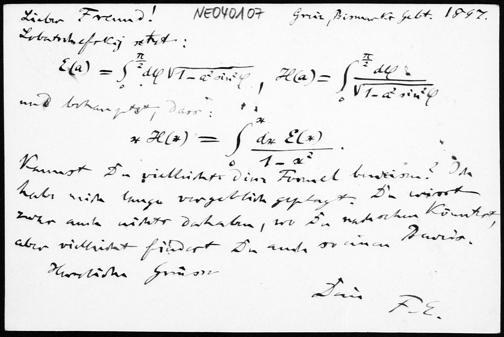 Lieber Freund! NE040107 Graz, Bismarck's Gebt. 1897.
Lobatschefskij setzt:
E(a) = ∫₀^{π/2} dφ √(1-a² sin²φ), H(a) = ∫₀^{π/2} dφ / √(1-a² sin²φ)
und behauptet, dass:
x H(x) = ∫₀^x dx E(x) / (1-x²).
Kannst Du vielleicht diese Formel beweisen? Ich
habe mich lange vergeblich geplagt. Du wirst
zwar auch nichts dahaben, wo Du nachsehen könntest,
aber vielleicht findest Du auch so einen Beweis.
Herzliche Grüsse
Dein F. E.